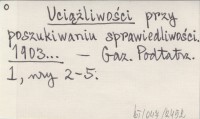 Uciążliwości przy
poszukiwaniu sprawiedliwości.
1903... — Gaz. Podtatrz.
1, nry 2-5.